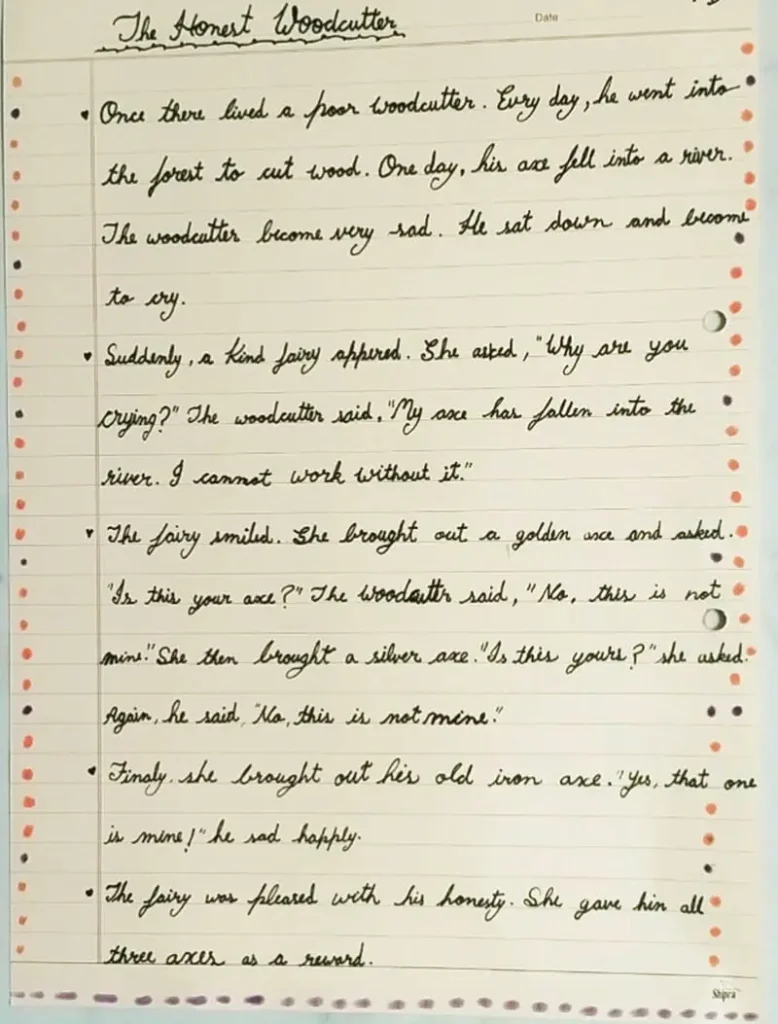 The Honest Woodcutter
Date
Once there lived a poor woodcutter. Evry day, he went into
the forest to cut wood. One day, his axe fell into a river.
The woodcutter become very sad. He sat down and become
to cry.
Suddenly, a Kind fairy appered. She asked, "Why are you
crying?" The woodcutter said, "My axe has fallen into the
river. I cannot work without it."
The fairy smiled. She brought out a golden axe and asked.
"Is this your axe?" The Woodcuttr said, "No, this is not
mine." She then brought a silver axe. "Is this yours?" she asked.
Again, he said, "No, this is not mine."
Finaly, she brought out his old iron axe. "Yes, that one
is mine!" he sad happly.
The fairy was pleased with his honesty. She gave him all
three axes as a reward.
Shipra